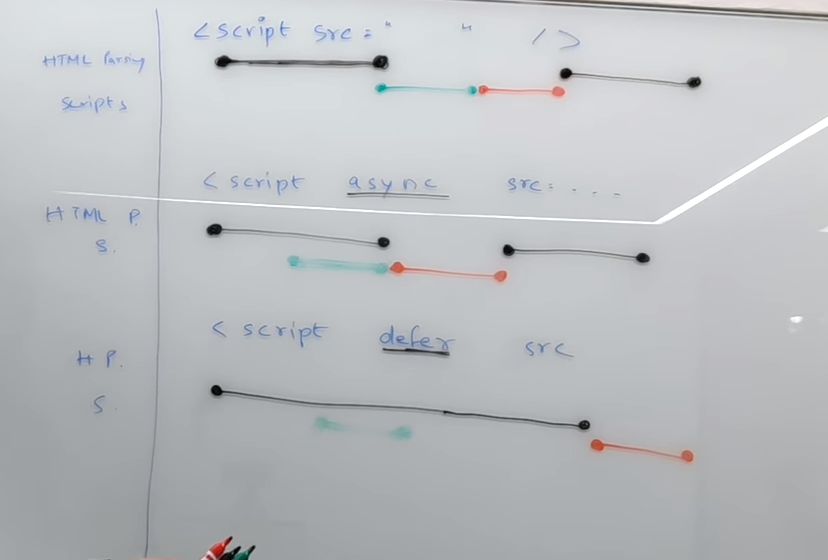 <script src=" " />
HTML Parsing
Scripts
<script async src= . . . .
HTML P.
S.
<script defer src
H P.
S.